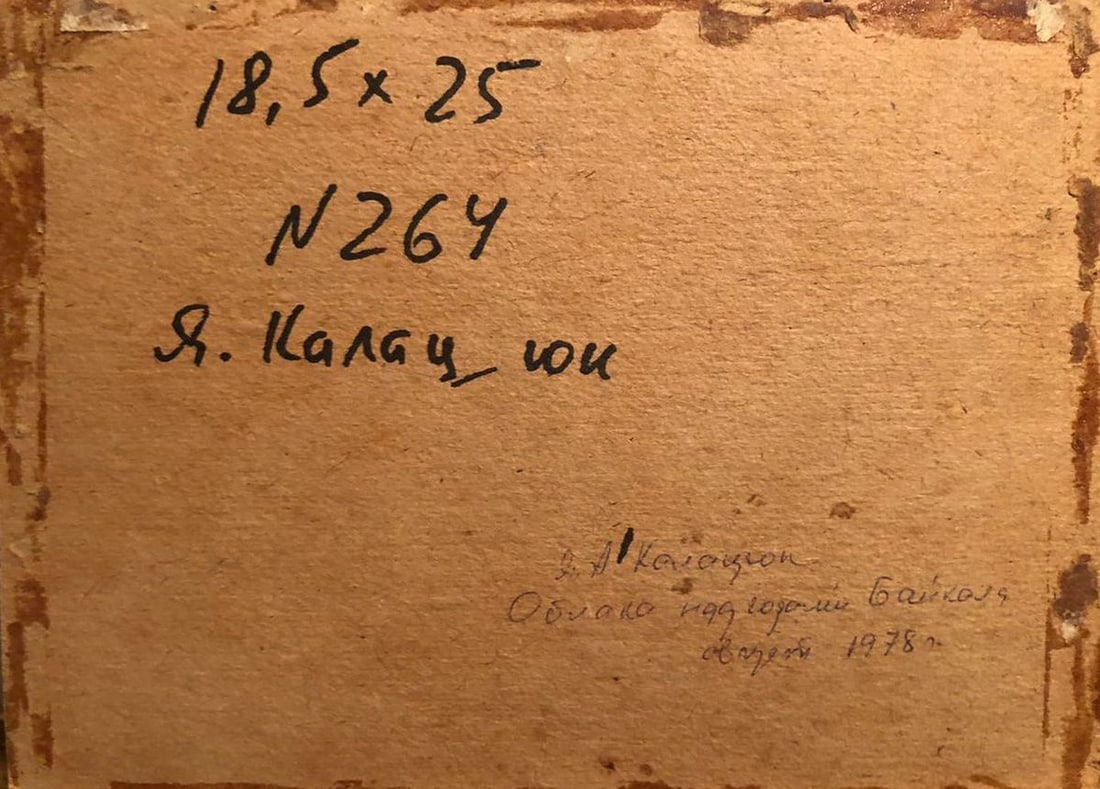 18,5 x 25
N 264
Я. Калац_юк
Я. А Калацюк
Облака над горами Байкала
август 1978 г.